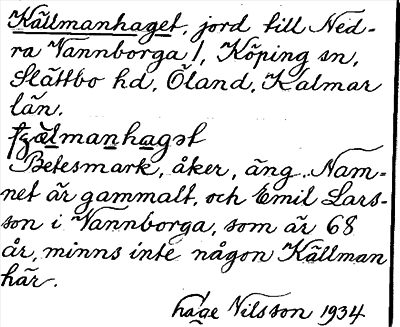 Källmanhaget, jord till Ned-
ra Vannborga 1, Köping sn,
Slättbo hd, Öland, Kalmar
län.
Betesmark, åker, äng. Nam-
net är gammalt, och Emil Lars-
son i Vannborga, som är 68
år, minns inte någon Källman
här.
Nilsson 1934